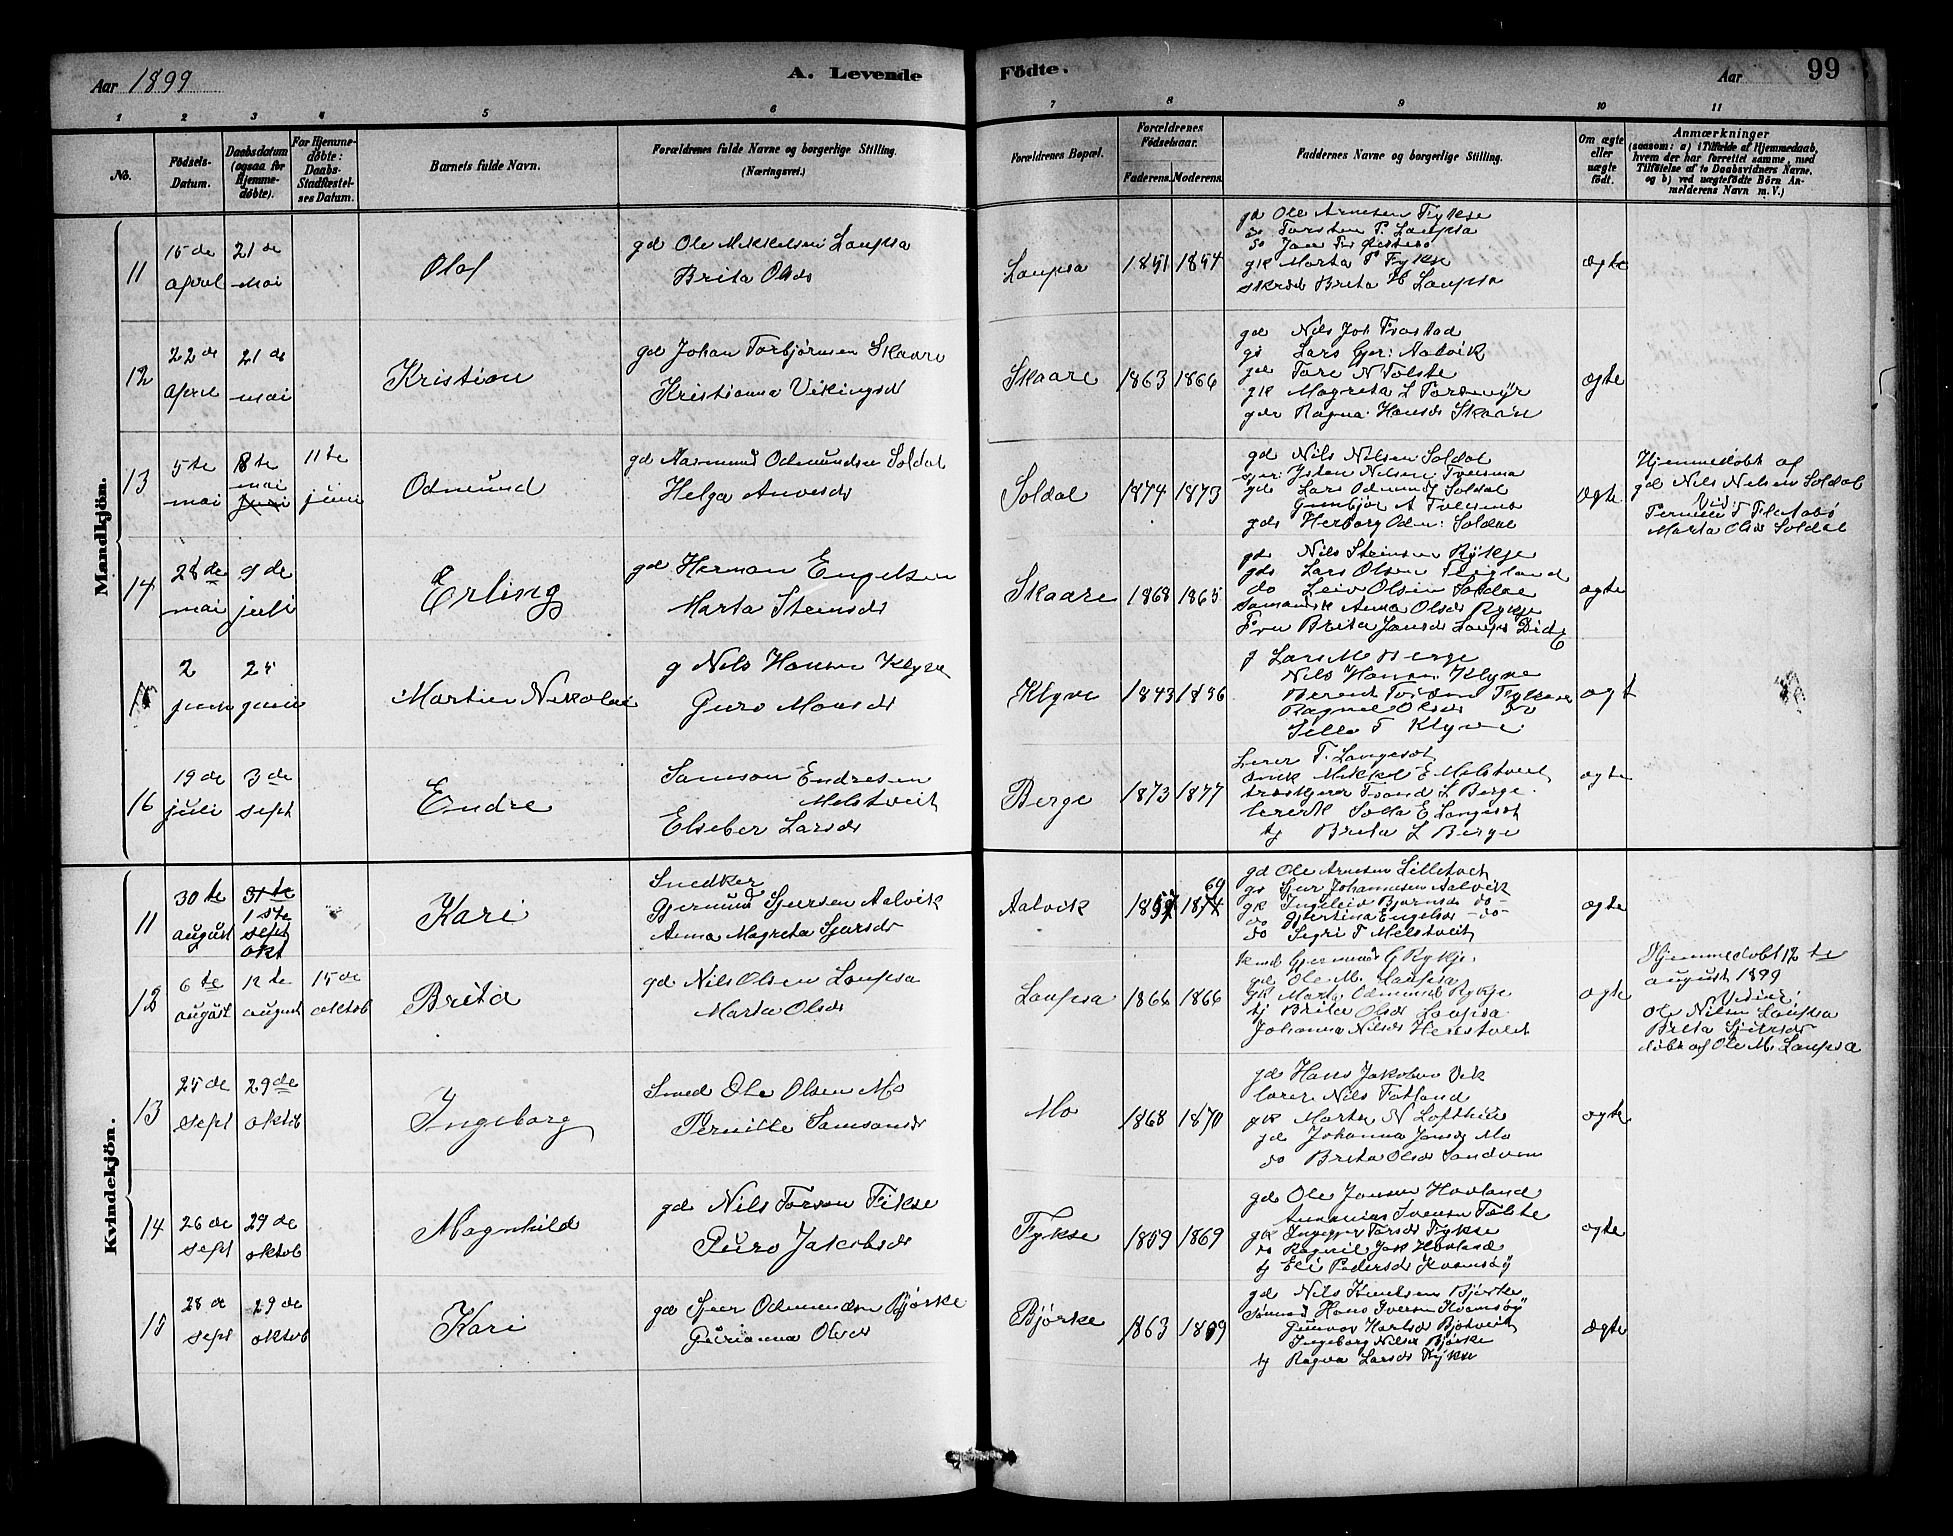 Aar 1899
A. Levende
Födte.
Aar
99
1 2 3 4 5 6 7 8 9 10 11
No.
Födsels-
Datum.
Daabsdatum
(ogsaa for
Hjemme-
döbte).
For Hjemme-
döbte:
Daabs-
Stadfæstel-
ses Datum.
Barnets fulde Navn.
Forældrenes fulde Navne og borgerlige Stilling.
(Næringsvei.)
Forældrenes Bopæl.
Forældrenes
Födselsaar.
Faderens. Moderens.
Faddernes Navne og borgerlige Stilling.
Om ægte
eller
uægte
födt.
Anmærkninger
(saasom: a) i Tilfælde af Hjemmedaab,
hvem der har forrettet samme, med
Tilföielse af to Daabsvidners Navne,
og b) ved uægtefödte Börn An-
melderens Navn m. V.)
Mandkjön.
11
15 de
april
21 de
mai
Olaf
gd Ole Mikkelsen Laupsa
Brita Olsdr
Laupsa
1851 1854
gd Ole Arnesen Fykse
do Torsten P. Laupsa
gk Marta P Fykse
Brita H Laupsa
ægte
12
22 de
april
21 de
mai
Kristian
gd Johan Torbjörnsen Skaare
Kristianna Vikingsd
Skaare
1863 1866
gd Nils Joh Frostad
gd Lars Gjer: Aalvik
gd Tore N Tolste
gk Magreta L
gdr Ragna Hansdr Skaare
ægte
13
5 te
mai
18 te
mai
Juni
11 te
juni
Odmund
gd Aasmund Odmundsen Soldal
Helga Arnesdr
Soldal
1874 1873
gd Nils Nilsen Soldal
Östen Nilsen Tveisma
gds Lars Odmund Soldal
Gunbjör A Tveisme
gdr Herborg Odm: Soldal
ægte
Hjemmedöbt af
gd Nils Nilsen Soldal
Vid:
Pernille T Flatabö
Marta Olsdr Soldal
14
28 de
mai
9 de
juli
Erling
gd Herman Engelsen
Marta Steinsdr
Skaare
1868 1865
gd Nils Steinsen Rykje
gds Lars Olsen Teigland
do Leiv Olsen Soldal
Anna Olsdr Rykje
Fru Brita Jansdr Laups
ægte
15
2
juni
25
juni
Martin Nikolai
g Nils Hansen Klyve
Guro Monsdr
Klyve
1843 1856
g Lars M Berge
Nils Hansen Klyve
Berent
Ragnel Olsdr do
Sille T Klyve
ægt
16
19 de
juli
3 de
sept
Endre
Samson Endresen
Melstveit
Elseber Larsdr
Berge
1873 1877
Lærer T. Langesæt
Mikkel E Melstveit
L Berge
E Langesæt
tj Brita L Berge
ægte
Kvindekjön.
11
30 te
august
31 te
1 ste
sept
okt
Kari
Snedker
Gjermund Sjursen Aalvik
Anna Magreta Sjursdr
Aalvik
1859 1874 69
gd Ole Arnesen Lilletveit
gd Sjur Johannesen Aalvik
gk Ingeleiv Bjørnsdr -do-
do Gjertina Engelsdr -do-
do Sigri T Melstveit
ægte
12
6 te
august
12 te
august
15 de
oktob
Brita
gd Nils Olsen Laupsa
Marta Olsdr
Laupsa
1866 1866
Gjermund G Rykje
gd Ole M. Laupsa
gk Marta Odmunsd Rykje
tj Brita Olsdr Laupsa
Johanna Nilsdr Herestveit
ægte
Hjemmedöbt 12 te
august 1899
Vidner:
Ole Nilsen Laupsa
Brita Sjursdr
döbt af Ole M. Laupsa
13
25 de
sept
29 de
oktob
Ingeborg
Smed Ole Olsen Mo
Pernille Samsonsdr
Mo
1868 1870
gd Hans Jakobsen Vik
lærer Nils Fotland
gk Marta N Lofthus
gd Johanna Jansdr Mo
do Brita Olsdr Sandven
ægte
14
26 de
sept
29 de
oktob
Magnhild
gd Nils Torsen Fikse
Guro Jakobsdr
Fykse
1859 1869
gd Ole Jonsen Hovland
Ananias Ivensen Tolste
gk Ingegjer Torsdr Fykse
do Ragnil Jak Hovland
tj Eli Pedersdr Kvamsöy
ægte
15
28 de
sept
29 de
oktob
Kari
gd Sjur Odmundsen Bjørke
Gurianna Olsdr
Bjørke
1863 1869
gd Nils Knudsen Bjørke
Hans Iversen Kvamsöy
Gunvor Hartsdr Botveit
Ingeborg Nilsdr Bjørke
tj Ragna Larsdr Fykse
ægte